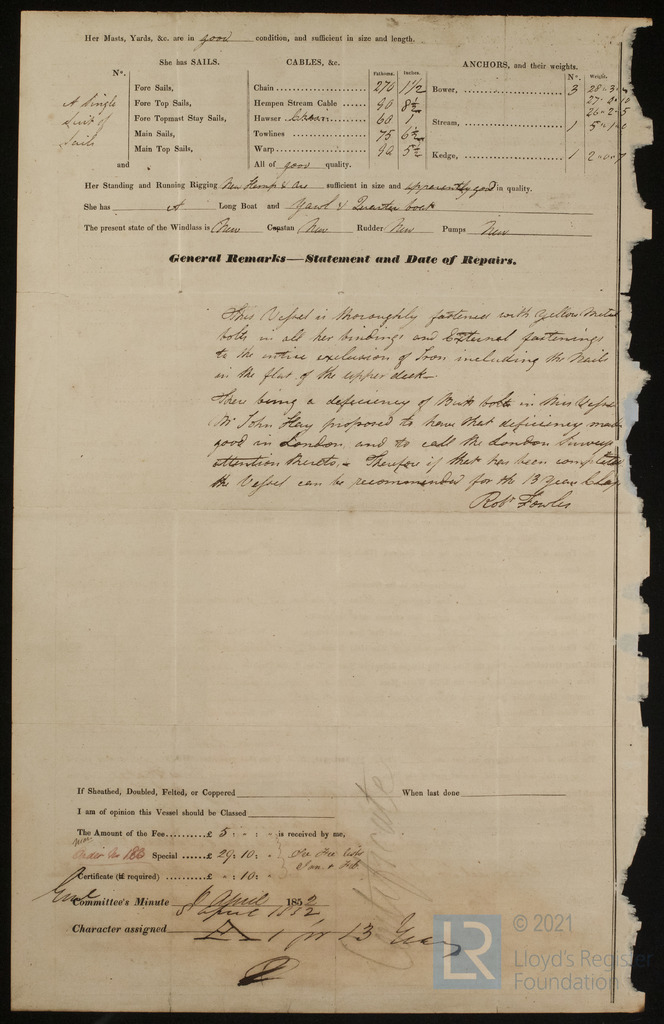 Her Masts, Yards, &c. are in good condition, and sufficient in size and length.
She has SAILS. CABLES, &c. ANCHORS, and their weights.
Nº. Fathoms. Inches. Nº. Weight.
A Single Suit of Sails
Fore Sails,
Fore Top Sails,
Fore Topmast Stay Sails,
Main Sails,
Main Top Sails,
and
Chain 270 1 1/2
Hempen Stream Cable 90 8 1/2
Hawser Chain 60 1
Towlines 75 6 1/2
Warp 90 5 1/2
All of good quality.
Bower, 3 28 " 3
27 " 0 " 10
26 " 2 " 5
Stream, 1 5 " 1
Kedge, 1 2 " 0 " 7
Her Standing and Running Rigging New Hemp & are sufficient in size and apparently good in quality.
She has A Long Boat and Yawl & Quarter boat
The present state of the Windlass is New Capstan New Rudder New Pumps New
General Remarks—Statement and Date of Repairs.
This Vessel is thoroughly fastened with Yellow Metal
bolts in all her bindings and External fastenings
to the entire exclusion of Iron including the Nails
in the flat of the upper deck—
There being a deficiency of Butt bolts in this Vessel
Mr John Hay proposed to have that deficiency made
good in London, and to call the London Surveyors
attention thereto,— Therefore if that has been completed
the Vessel can be recommended for the 13 Years Class
Robt Fowles
If Sheathed, Doubled, Felted, or Coppered When last done
I am of opinion this Vessel should be Classed
The Amount of the Fee £ 5 : " : " is received by me,
Special £ 29 : 10 : " See Fee
Certificate (if required) £ " : 10 : "
Certificate
Committee's Minute 9 April 1852
8 April 1852
Character assigned A 1 for 13 Years
© 2021
LR
Lloyd's Register
Foundation